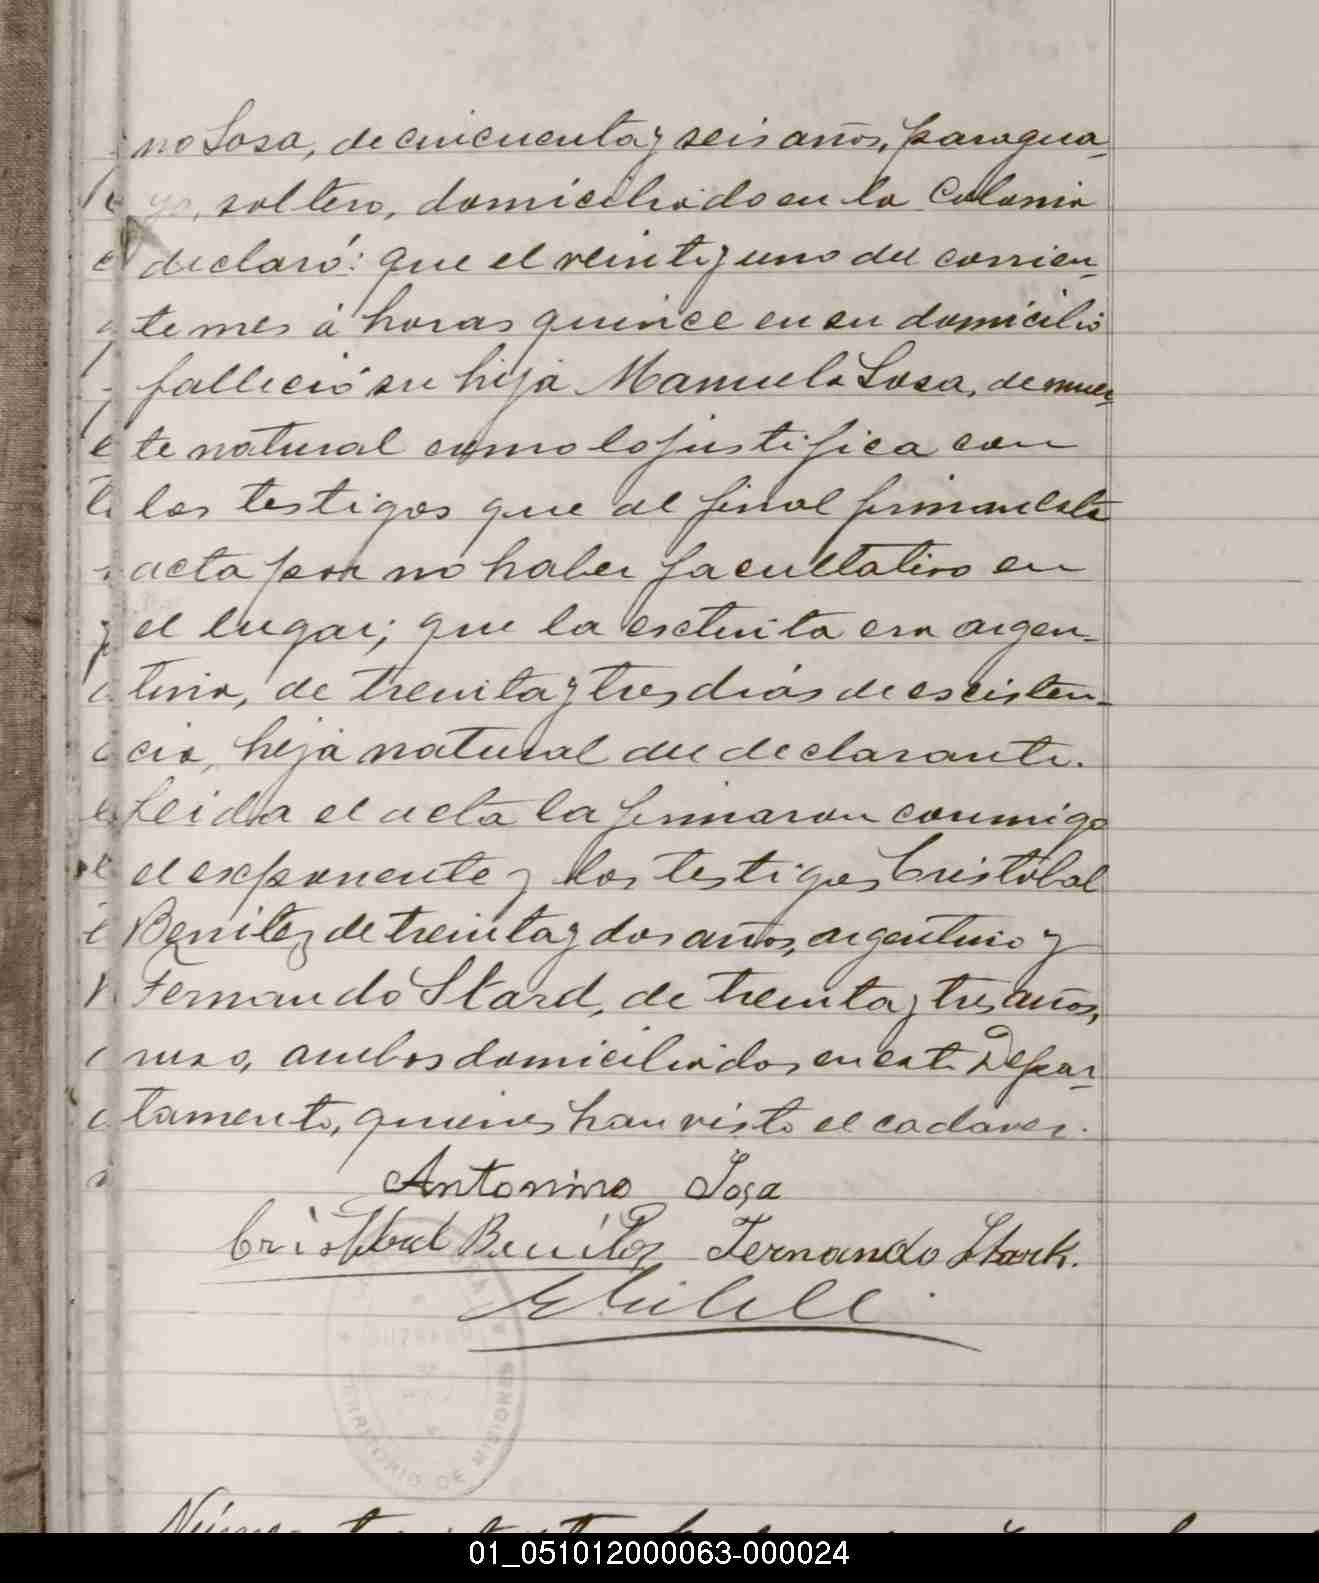 no Sosa, de cincuenta y seis años, paragua-
yo, soltero, domiciliado en la Colonia
declaró: que el veinte y uno del corrien-
te mes á horas quince en su domicilio
falleció su hija Manuela Sosa, de muer-
te natural como lo justifica con
los testigos que al final firman esta
acta por no haber facultativo en
el lugar; que la esctinta era argen-
tina, de treinta y tres dias de escisten-
cia, hija natural del declarante.
Leida el acta la firmaron conmigo
el exponente y los testigos Cristóbal
Benitez de treinta y dos años, argentino y
Fernando Stard, de treinta y tres años,
ruso, ambos domiciliados en este Depar-
tamento, quienes han visto el cadaver.
Antonino Sosa
Cristobal Benítez Fernando Stark.
TERRITORIO DE MISIONES
Núme
01_051012000063-000024